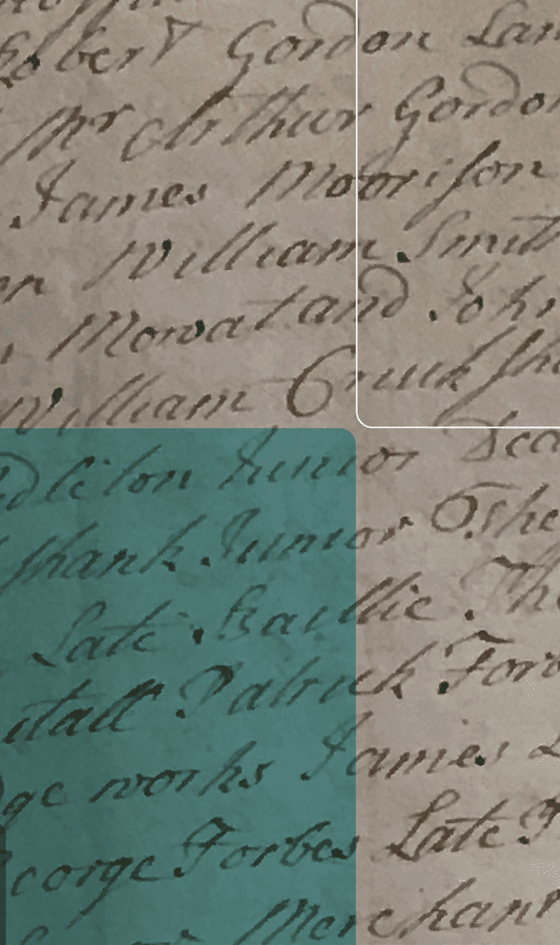 Robert Gordon Lan
Mr Arthur Gordo
James Moorison
William Smith
Mowat and John
William Cruiksha
dleton Junior Dea
shank Junior The
Late Baillie Th
itall Patrick Forb
ge works James L
George Forbes Late F
Merchant